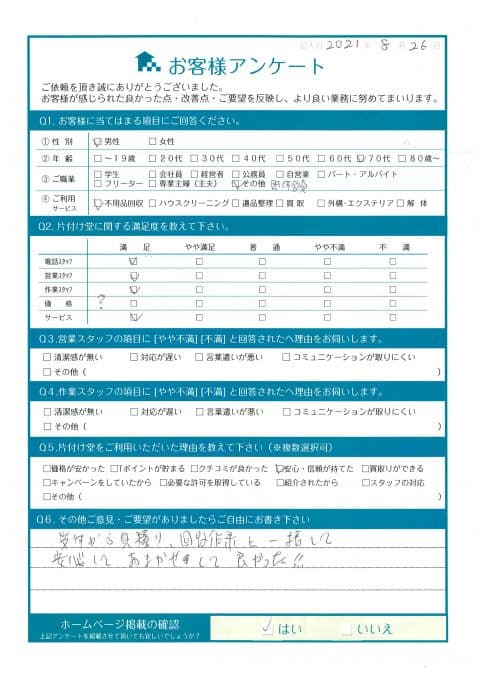 記入日 2021 年 8 月 26 日
お客様アンケート
ご依頼を頂き誠にありがとうございました。
お客様が感じられた良かった点・改善点・ご要望を反映し、より良い業務に努めてまいります。
Q1. お客様に当てはまる項目にご回答ください。
① 性 別 ☑男性 ☐女性
② 年 齢 ☐〜19歳 ☐20代 ☐30代 ☐40代 ☐50代 ☐60代 ☑70代 ☐80歳〜
③ ご職業 ☐学生 ☐会社員 ☐経営者 ☐公務員 ☐自営業 ☐パート・アルバイト
☐フリーター ☐専業主婦(主夫) ☑その他 団体役員
④ ご利用サービス ☑不用品回収 ☐ハウスクリーニング ☐遺品整理 ☐買取 ☐外構・エクステリア ☐解 体
Q2. 片付け堂に関する満足度を教えて下さい。
満 足 やや満足 普 通 やや不満 不 満
電話スタッフ ☑ ☐ ☐ ☐ ☐
営業スタッフ ☑ ☐ ☐ ☐ ☐
作業スタッフ ☑ ☐ ☐ ☐ ☐
価 格 ? ☐ ☐ ☐ ☐ ☐
サービス ☑ ☐ ☐ ☐ ☐
Q3.営業スタッフの項目に [やや不満] [不満] と回答されたへ理由をお伺いします。
☐清潔感が無い ☐対応が遅い ☐言葉遣いが悪い ☐コミュニケーションが取りにくい
☐その他 ( )
Q4.作業スタッフの項目に [やや不満] [不満] と回答されたへ理由をお伺いします。
☐清潔感が無い ☐対応が遅い ☐言葉遣いが悪い ☐コミュニケーションが取りにくい
☐その他 ( )
Q5.片付け堂をご利用いただいた理由を教えて下さい(※複数選択可)
☐価格が安かった ☐Tポイントが貯まる ☐クチコミが良かった ☑安心・信頼が持てた ☐買取りができる
☐キャンペーンをしていたから ☐必要な許可を取得している ☐紹介されたから ☐スタッフの対応
☐その他 ( )
Q6. その他ご意見・ご要望がありましたらご自由にお書き下さい
受付から見積り、回収作業と一括して
安心しておまかせして良かった!!
ホームページ掲載の確認 ☑はい ☐いいえ
上記アンケートを掲載させて頂いても宜しいでしょうか?